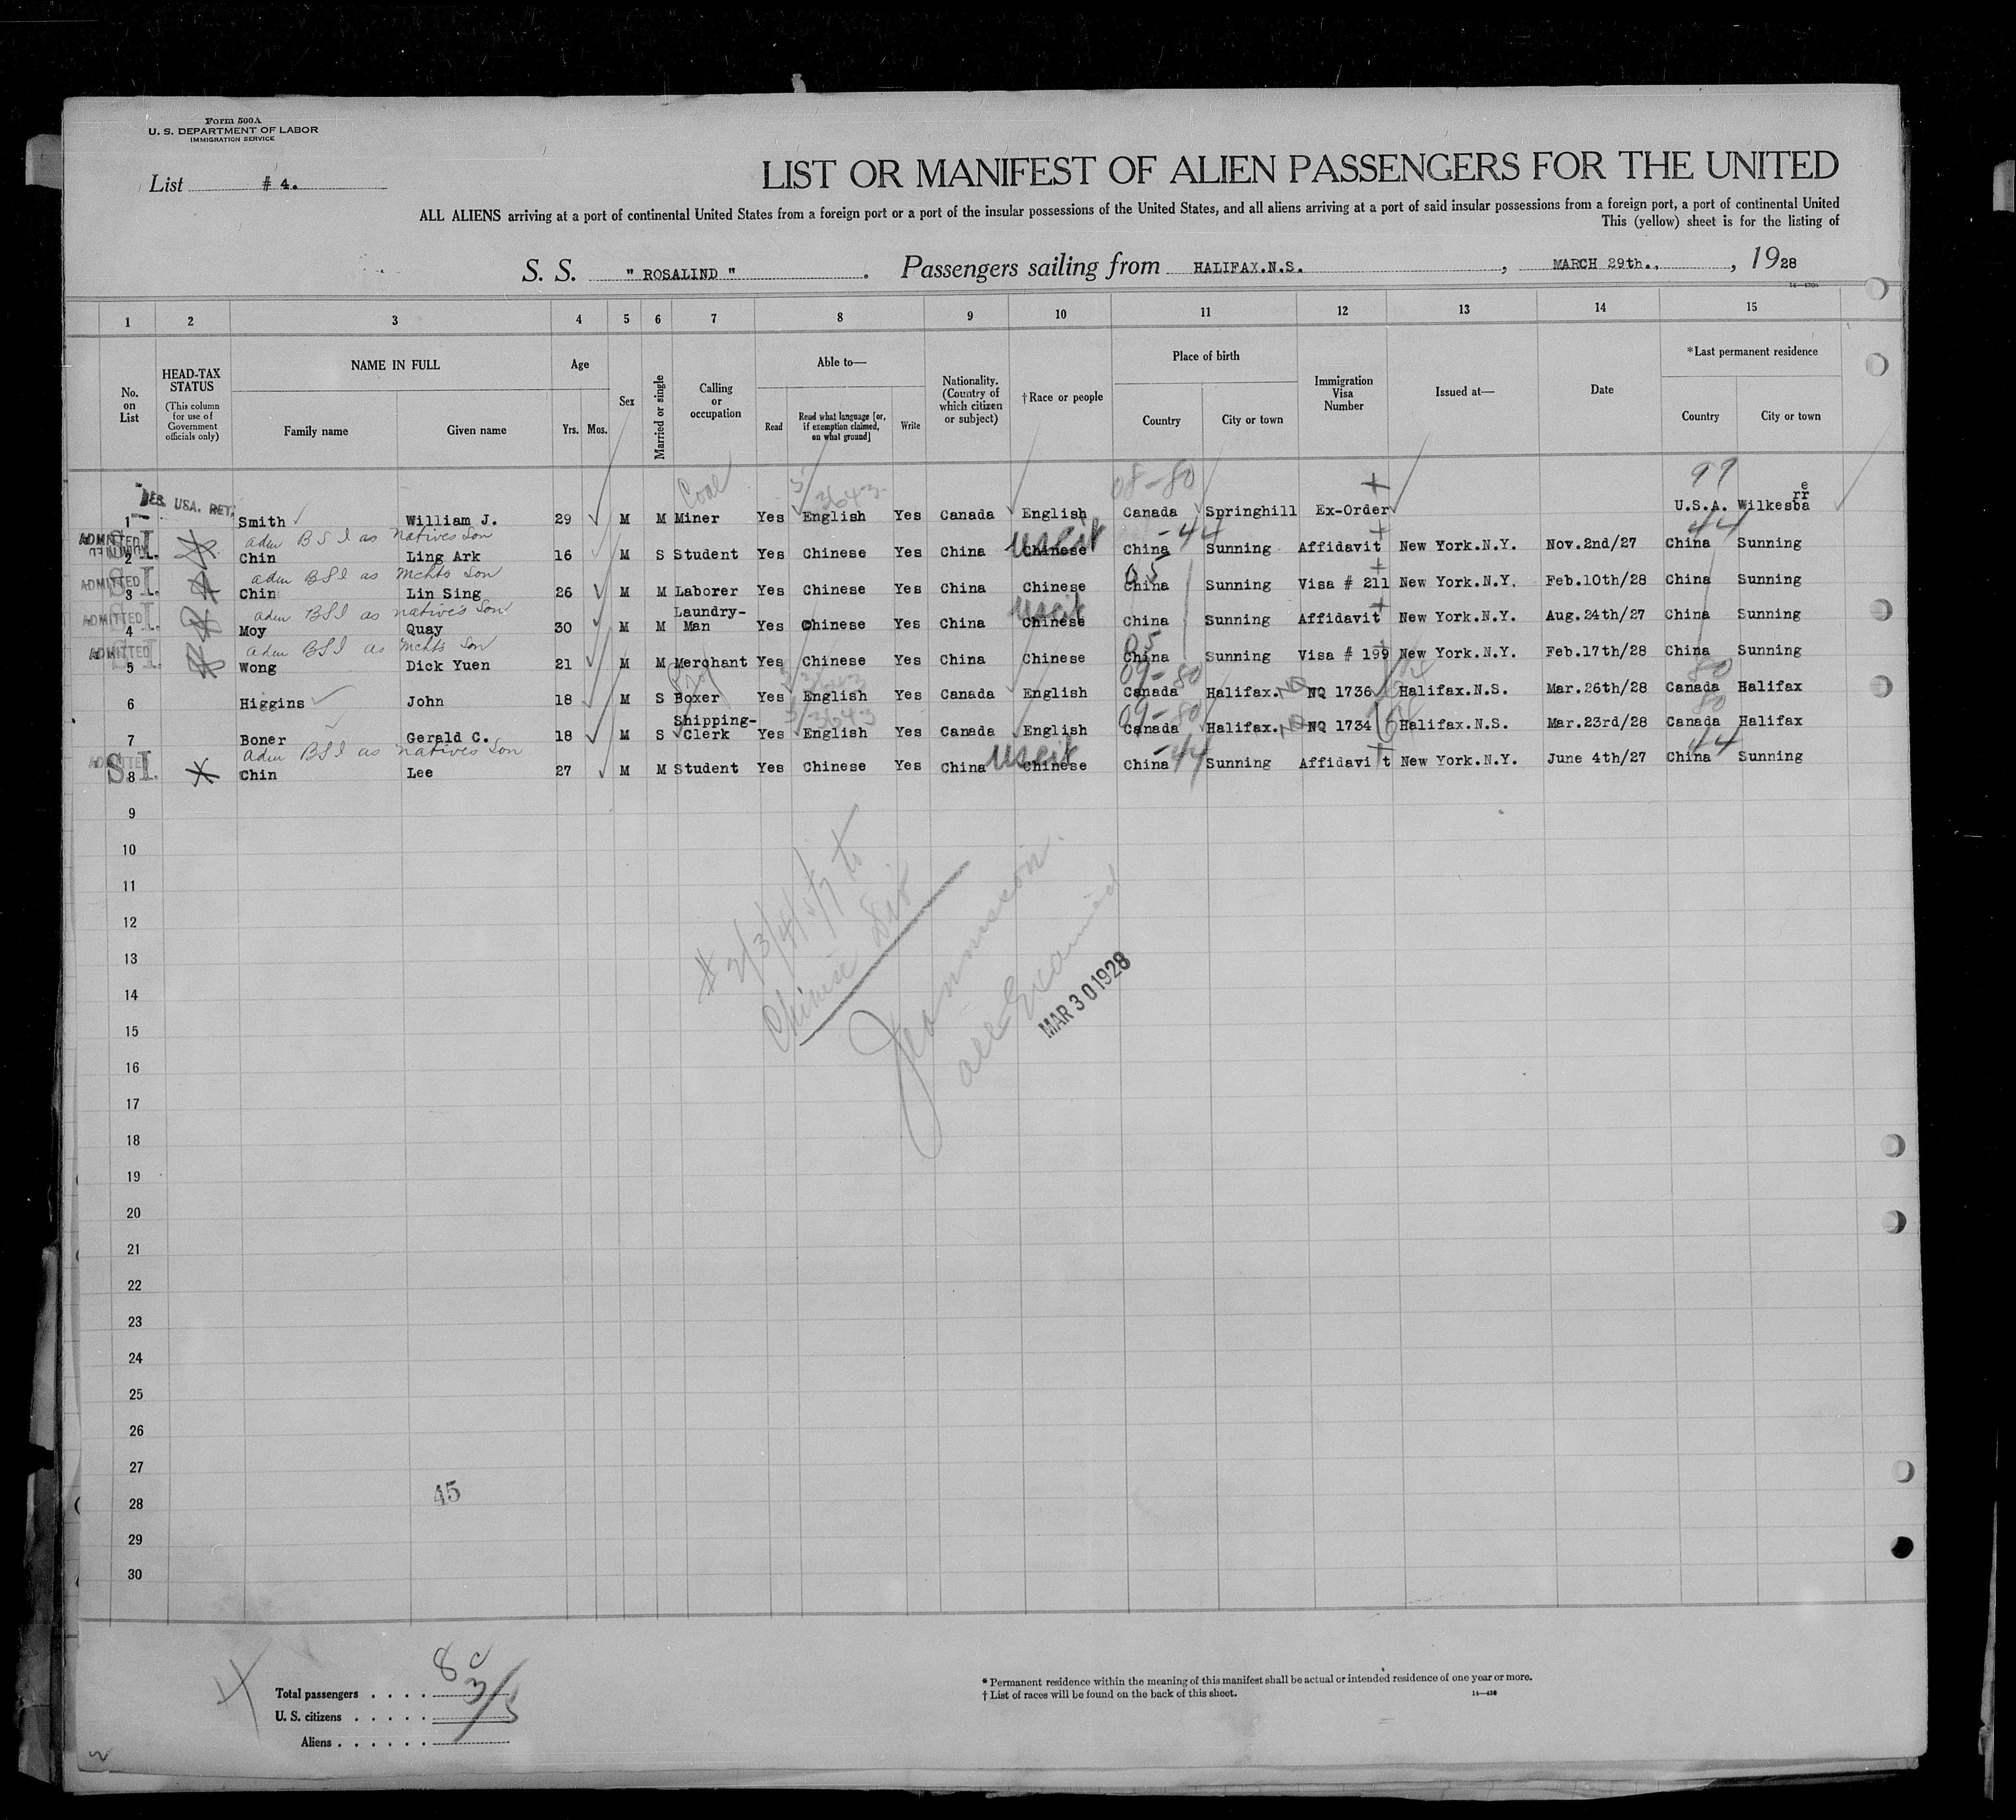 Form 500A
U. S. DEPARTMENT OF LABOR
IMMIGRATION SERVICE
List # 4.
LIST OR MANIFEST OF ALIEN PASSENGERS FOR THE UNITED
ALL ALIENS arriving at a port of continental United States from a foreign port or a port of the insular possessions of the United States, and all aliens arriving at a port of said insular possessions from a foreign port, a port of continental United
This (yellow) sheet is for the listing of
S. S. " ROSALIND " . Passengers sailing from HALIFAX.N.S. , MARCH 29th., , 1928
1 2 3 4 5 6 7 8 9 10 11 12 13 14 15
No. on List
HEAD-TAX STATUS (This column for use of Government officials only)
NAME IN FULL Family name Given name
Age Yrs. Mos.
Sex
Married or single
Calling or occupation
Able to— Read Read what language [or, if exemption claimed, on what ground] Write
Nationality. (Country of which citizen or subject)
† Race or people
Place of birth Country City or town
Immigration Visa Number
Issued at—
Date
*Last permanent residence Country City or town
Coal 3643 08-80 99
1 USA. RET. Smith William J. 29 M M Miner Yes English Yes Canada English Canada Springhill Ex-Order U.S.A. Wilkesbarre
adm B S I as natives Son uscit -44 44
ADMITTED S.I. 2 Chin Ling Ark 16 M S Student Yes Chinese Yes China Chinese China Sunning Affidavit New York.N.Y. Nov.2nd/27 China Sunning
adm BSI as Mchts Son 05
ADMITTED S.I. 3 Chin Lin Sing 26 M M Laborer Yes Chinese Yes China Chinese China Sunning Visa # 211 New York.N.Y. Feb.10th/28 China Sunning
adm BSI as native's Son uscit
ADMITTED S.I. 4 Moy Quay 30 M M Laundry-Man Yes Chinese Yes China Chinese China Sunning Affidavit New York.N.Y. Aug.24th/27 China Sunning
adm BSI as Mchts Son 05
ADMITTED S.I. 5 Wong Dick Yuen 21 M M Merchant Yes Chinese Yes China Chinese China Sunning Visa # 199 New York.N.Y. Feb.17th/28 China Sunning
09-80 80
6 Higgins John 18 M S Boxer Yes English Yes Canada English Canada Halifax. NQ 1736 Halifax.N.S. Mar.26th/28 Canada Halifax
3643 09-80 80
7 Boner Gerald C. 18 M S Shipping-Clerk Yes English Yes Canada English Canada Halifax. NQ 1734 Halifax.N.S. Mar.23rd/28 Canada Halifax
adm BSI as natives Son uscit -44 44
ADMITTED S.I. 8 Chin Lee 27 M M Student Yes Chinese Yes China Chinese China Sunning Affidavit New York.N.Y. June 4th/27 China Sunning
9
10
11
12
13
14
15
16
17
18
19
20
21
22
23
24
25
26
27
28
29
30
Chinese
all Examined
MAR 30 1928
45
Total passengers . . . . 8
U. S. citizens . . . . . 3/5
Aliens . . . . . .
* Permanent residence within the meaning of this manifest shall be actual or intended residence of one year or more.
† List of races will be found on the back of this sheet.